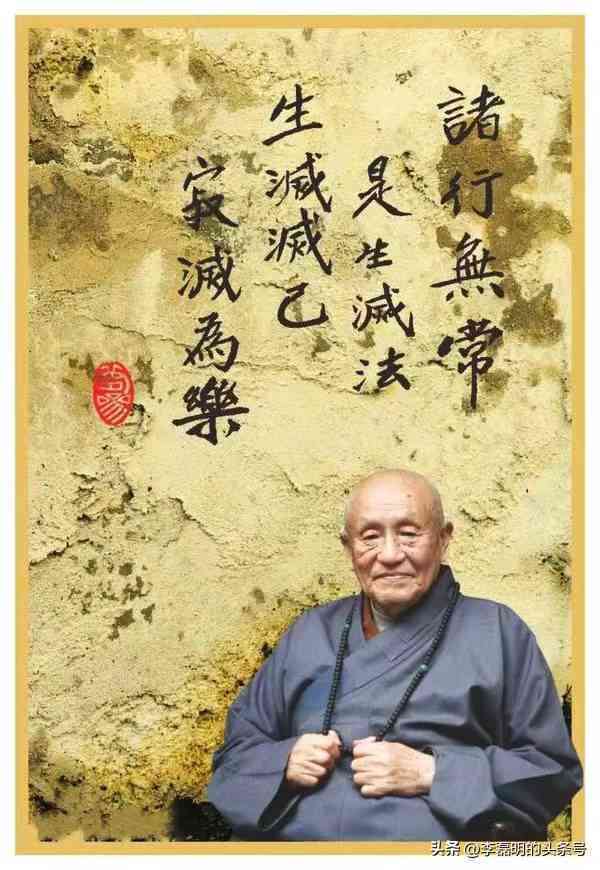 諸行無常
是生滅法
生滅滅已
寂滅為樂
头条 @李磊明的头条号